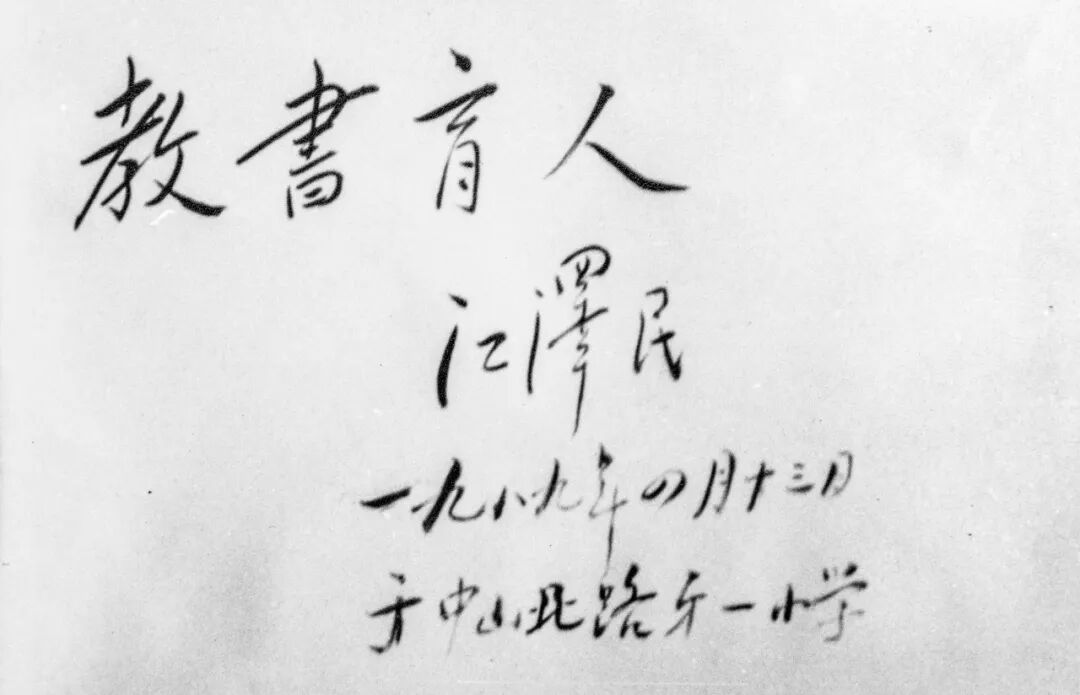 教書育人
江澤民
一九八九年四月十三日
于中山北路第一小学